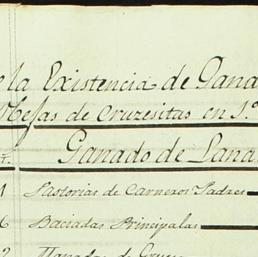 la Existencia de Gana
Mesas de Cruzesitas en 1º
Ganado de Lana
1 Pastorias de Carneros Padres
6 Baciadas Principalas
2